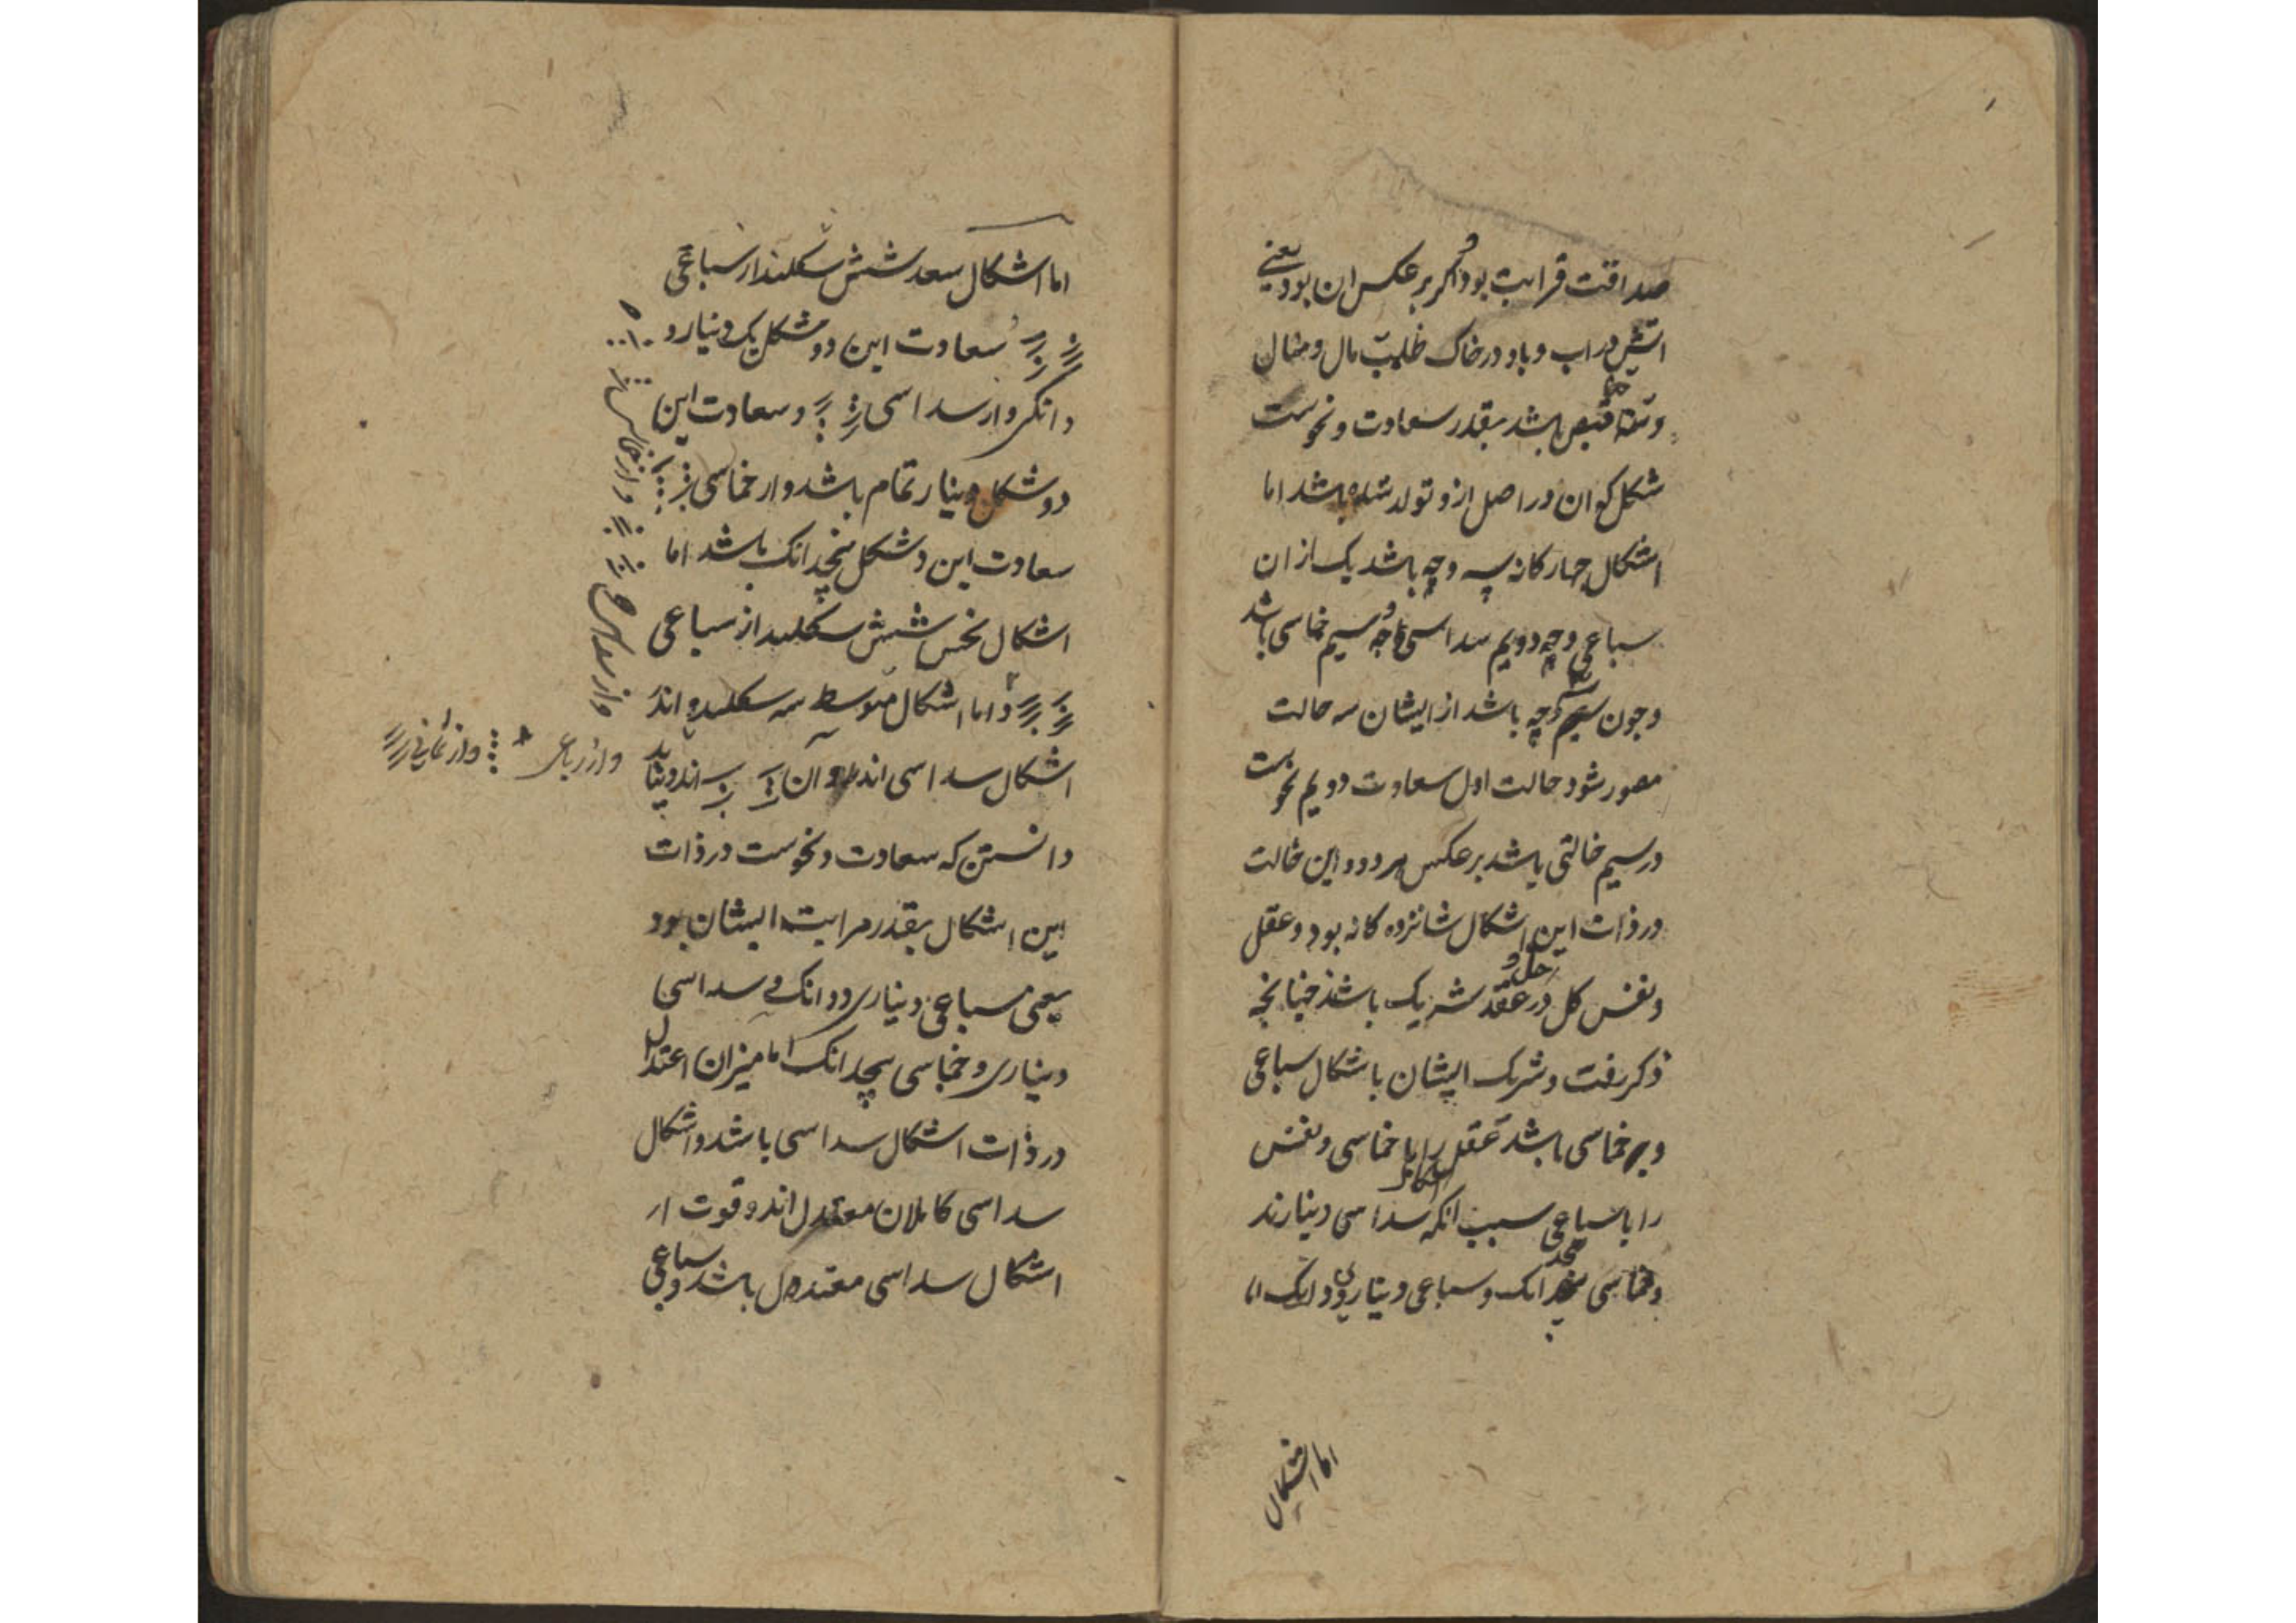 صداقت قرابت بود و اگر بر عکس این بود یعنی
اتش در اب و باد در خاک طلب مال و منال
قبض باشد بقدر سعادت و نحوست
شکل که ان در اصل ازو تولد شده باشد اما
اشکال چهارکانه بسه وجه باشد یک از ان
سباعی وجه دویم سداسی وجه سیم خماسی باشد
و چون سه وجه باشد از ایشان سه حالت
مصور شود حالت اول سعادت دویم نحوست
و سیم حالتی باشد بر عکس هر دو و این حالت
در ذات این اشکال شانزده کانه بود و عقل
و نفس کل در حل و عقد شریک باشند چنانچه
ذکر رفت و شرکت ایشان باشکال سباعی
و بر خماسی باشد عقل را با خماسی و نفس
را با سباعی سبب انکه اشکال سداسی دینارند
و خماسی پنجدانک و سباعی دیناری و دودانک اما
اما اشکال
اما اشکال سعد شش شکلند از سباعی
سعادت این دو شکل یک دینار و
دانکی و از سداسی و سعادت این
دو شکل دینار تمام باشد و از خماسی
سعادت این دو شکل پنجدانک باشد اما
اشکال نحس شش شکلند از سباعی
و اما اشکال متوسط سه شکلند و اند
اشکال سداسی اند و آن اند و بباید
دانستن که سعادت و نحوست در ذات
این اشکال بقدر مراتب ایشان بود
یعنی سباعی دیناری و دودانک و سداسی
دیناری و خماسی پنجدانک اما میزان اعتدال
در ذات اشکال سداسی باشد و اشکال
سداسی کاملان معتدل اند و قوت از
اشکال سداسی معتدل باشد و سباعی
و از سداسی و از خماسی
و از رباعی و از ثمانی